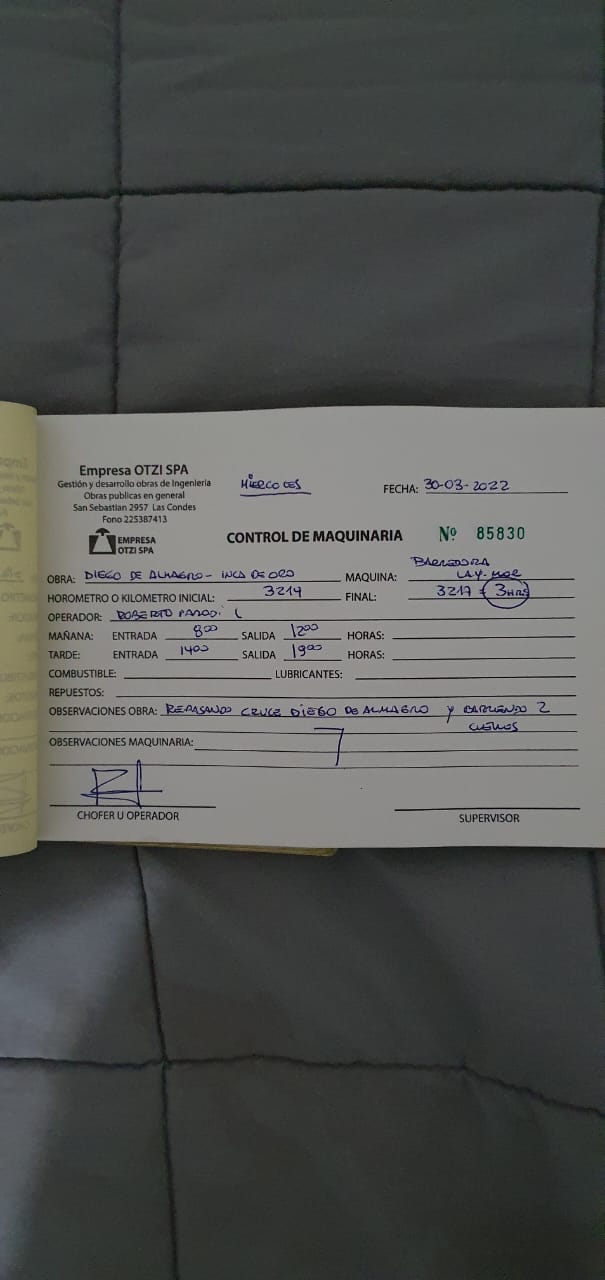 Empresa OTZI SPA
Gestión y desarrollo obras de Ingenieria
Obras publicas en general
San Sebastian 2957 Las Condes
Fono 225387413
MIERCOLES
FECHA: 30-03-2022
EMPRESA
OTZI SPA
CONTROL DE MAQUINARIA Nº 85830
OBRA: DIEGO DE ALMAGRO - INCA DE ORO MAQUINA: BARREDORA LAY-MOR
HOROMETRO O KILOMETRO INICIAL: 3214 FINAL: 3217 = 3HRS
OPERADOR: ROBERTO
MAÑANA: ENTRADA 8:00 SALIDA 12:00 HORAS:
TARDE: ENTRADA 14:00 SALIDA 19:00 HORAS:
COMBUSTIBLE: LUBRICANTES:
REPUESTOS:
OBSERVACIONES OBRA: REPASANDO CRUCE DIEGO DE ALMAGRO Y BARRIENDO 2
OBSERVACIONES MAQUINARIA:
CHOFER U OPERADOR
SUPERVISOR